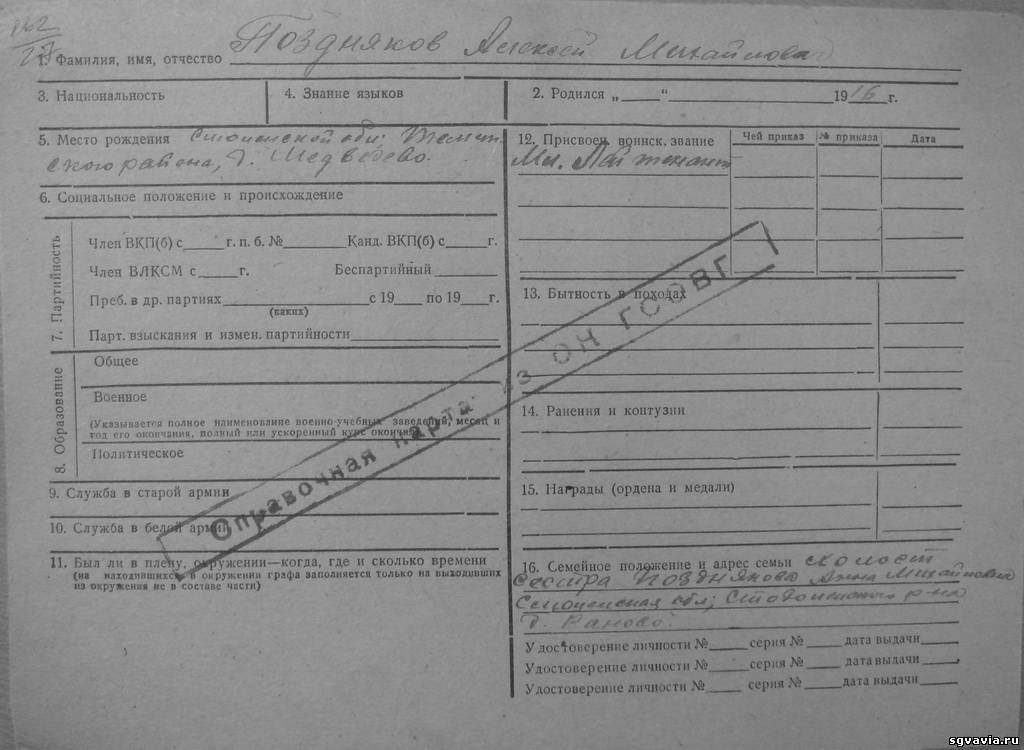 162
27
1. Фамилия, имя, отчество Поздняков Алексей Михайлович
3. Национальность
4. Знание языков
2. Родился „ “ 1916 г.
5. Место рождения Смоленской обл; Темкин
ского района, д. Медведево.
6. Социальное положение и происхождение
7. Партийность
Член ВКП(б) с г. п. б. № Канд. ВКП(б) с г.
Член ВЛКСМ с г. Беспартийный
Преб. в др. партиях с 19 по 19 г.
(каких)
Парт. взыскания и измен. партийности
8. Образование
Общее
Военное
(Указывается полное наименование военно-учебных заведений, месяц и
год его окончания, полный или ускоренный курс окончил)
Политическое
9. Служба в старой армии
10. Служба в белой армии
11. Был ли в плену, окружении—когда, где и сколько времени
(на находившихся в окружении графа заполняется только на выходивших
из окружения не в составе части)
12. Присвоен. воинск. звание Чей приказ № приказа Дата
Мл. Лейтенант
13. Бытность в походах
14. Ранения и контузии
15. Награды (ордена и медали)
16. Семейное положение и адрес семьи холост
Сестра Позднякова Анна Михайловна
Смоленская обл;
Удостоверение личности № серия № дата выдачи
Удостоверение личности № серия № дата выдачи
Удостоверение личности № серия № дата выдачи
Справочная карта из ОН ГСОВГ
sgvavia.ru